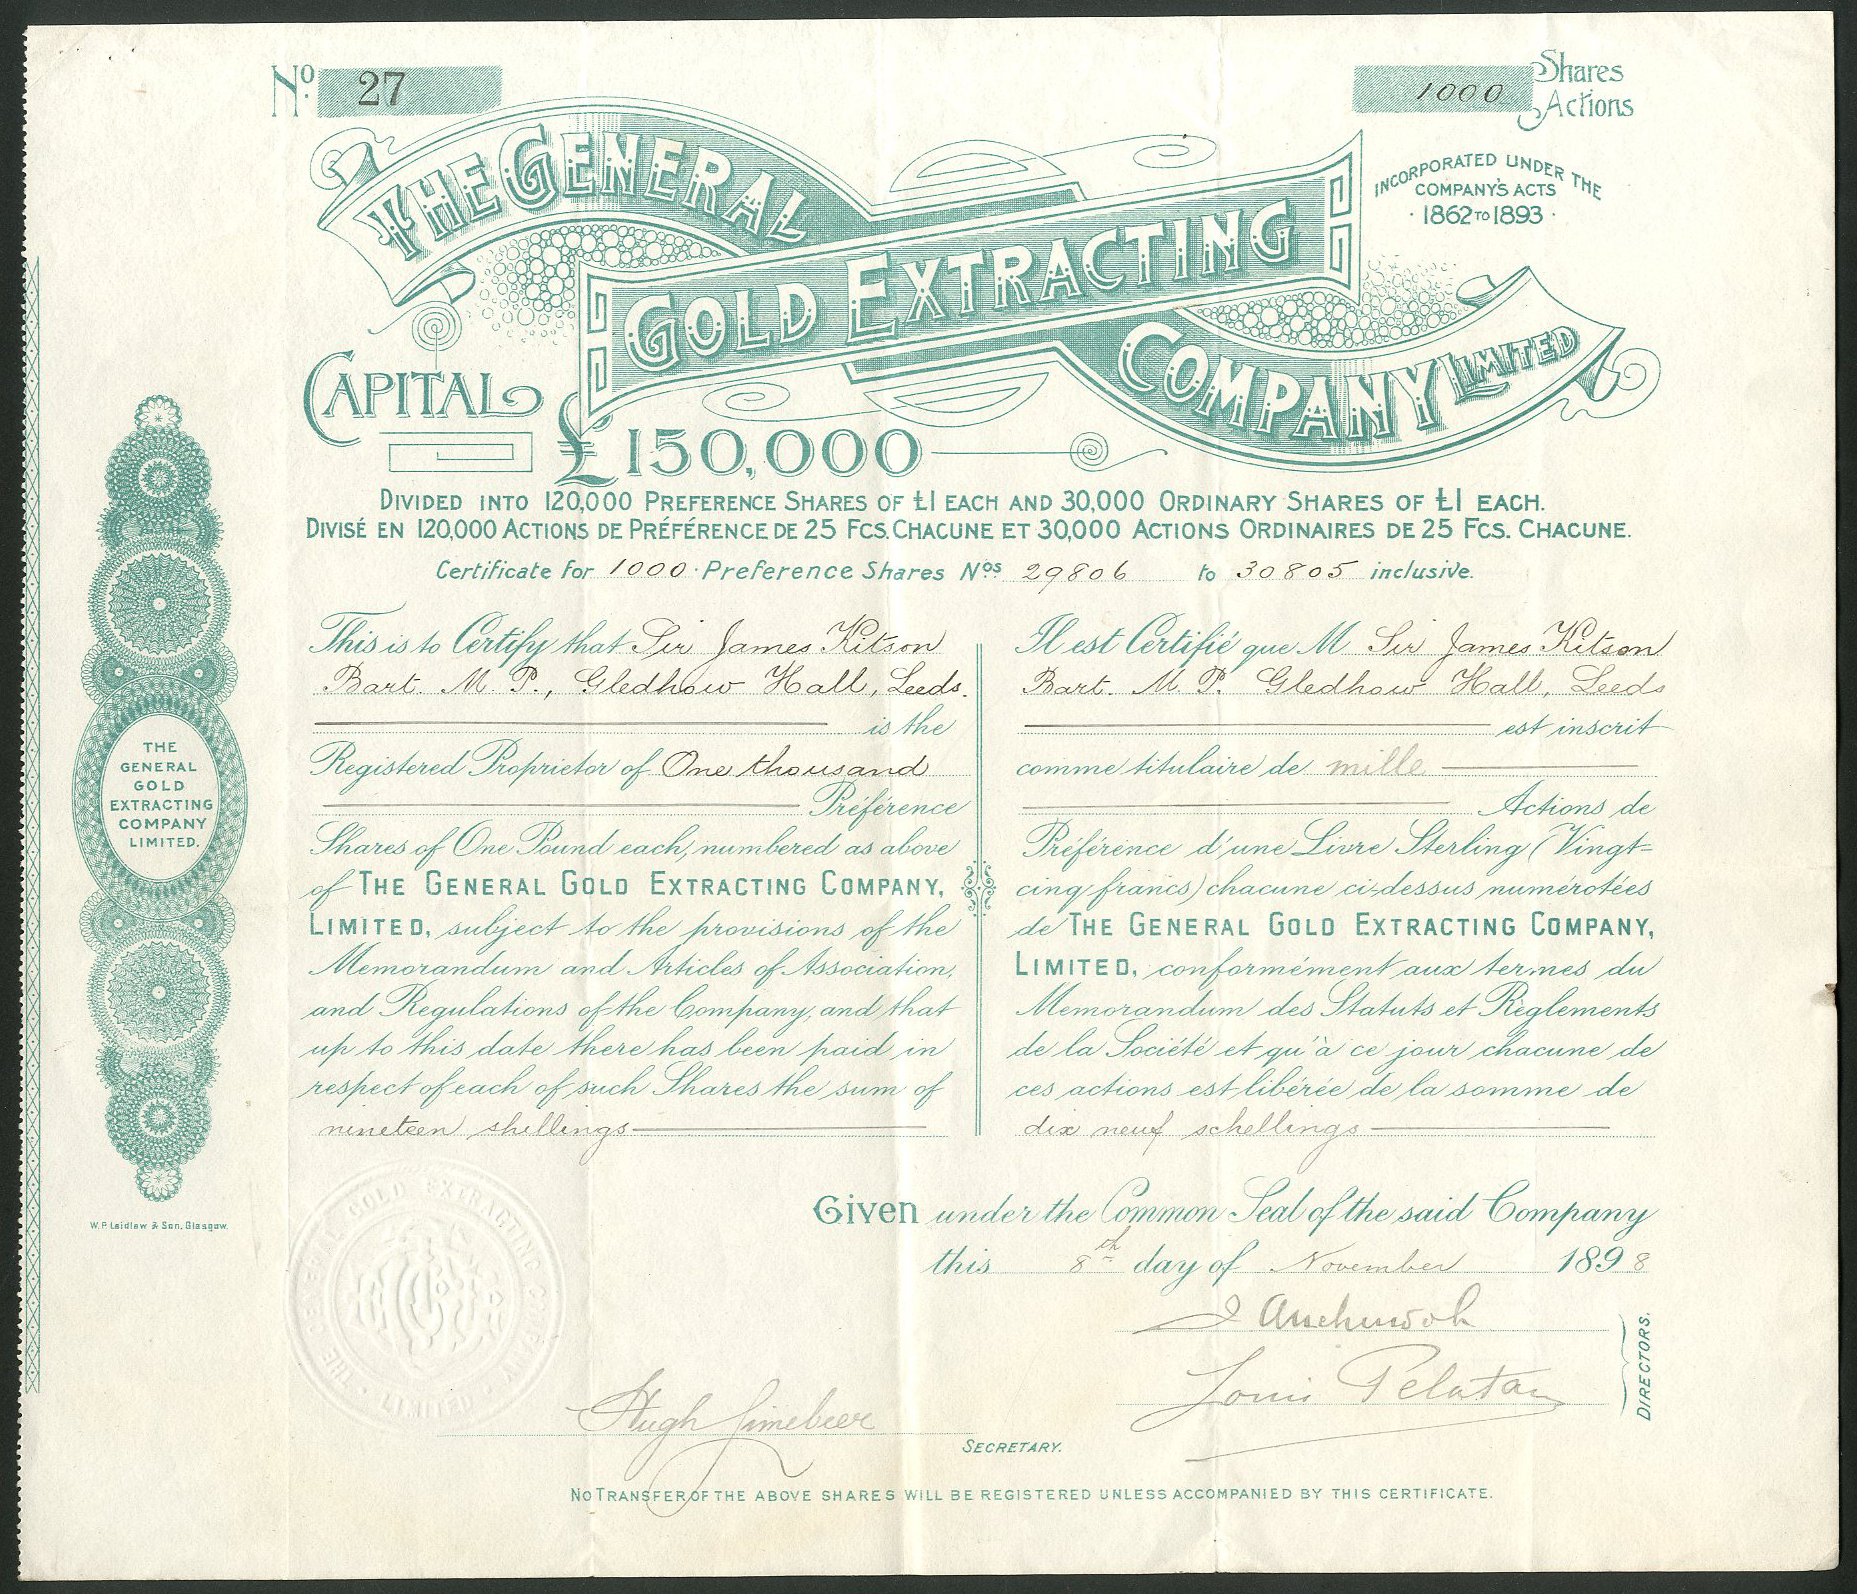 No. 27
1000 Shares
Actions
THE GENERAL
GOLD EXTRACTING
COMPANY LIMITED
INCORPORATED UNDER THE
COMPANY'S ACTS
· 1862 TO 1893 ·
CAPITAL
£150,000
DIVIDED INTO 120,000 PREFERENCE SHARES OF £1 EACH AND 30,000 ORDINARY SHARES OF £1 EACH.
DIVISÉ EN 120,000 ACTIONS DE PRÉFÉRENCE DE 25 FCS. CHACUNE ET 30,000 ACTIONS ORDINAIRES DE 25 FCS. CHACUNE.
Certificate for 1000 Preference Shares Nos 29806 to 30805 inclusive.
This is to Certify that Sir James Kitson
Bart. M. P., Gledhow Hall, Leeds.
is the
Registered Proprietor of One thousand
Préférence
Shares of One Pound each, numbered as above
of THE GENERAL GOLD EXTRACTING COMPANY,
LIMITED, subject to the provisions of the
Memorandum and Articles of Association,
and Regulations of the Company, and that
up to this date there has been paid in
respect of each of such Shares the sum of
nineteen shillings
Il est Certifié que M Sir James Kitson
Bart. M. P. Gledhow Hall, Leeds
est inscrit
comme titulaire de mille
Actions de
Préférence d'une Livre Sterling (Vingt-
cinq francs) chacune ci-dessus numérotées
de THE GENERAL GOLD EXTRACTING COMPANY,
LIMITED, conformément aux termes du
Memorandum des Statuts et Règlements
de la Société et qu'à ce jour chacune de
ces actions est libérée de la somme de
dix neuf schellings
THE
GENERAL
GOLD
EXTRACTING
COMPANY
LIMITED.
W. P. Laidlaw & Son, Glasgow.
Given under the Common Seal of the said Company
this 8th day of November 1898
THE GENERAL GOLD EXTRACTING COMPANY LIMITED
Louis Pelatan
DIRECTORS.
Hugh
SECRETARY.
NO TRANSFER OF THE ABOVE SHARES WILL BE REGISTERED UNLESS ACCOMPANIED BY THIS CERTIFICATE.